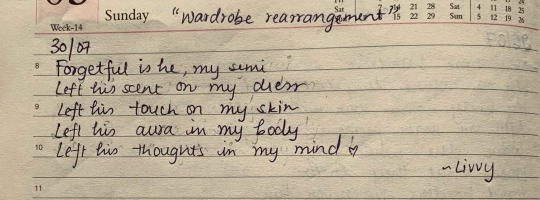 Sunday "Wardrobe rearrangement"
Week-14
30/07
8 Forgetful is he, my semi
Left his scent on my dress
9 Left his touch on my skin
Left his aura in my body
10 Left his thoughts in my mind ♡
~Livvy
11
Sat 14 21 28 Sat 4 11 18 25
15 22 29 Sun 5 12 19 26